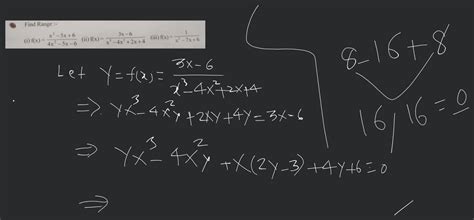 Find Range :-
(i) f(x) = x² - 3x + 6 / 4x² - 5x - 6 (ii) f(x) = 3x - 6 / x³ - 4x² + 2x + 4 (iii) f(x) = 1 / x² - 7x + 6
Let Y = f(x) = 3x - 6 / x³ - 4x² + 2x + 4
⇒ Yx³ - 4x²y + 2xy + 4y = 3x - 6
⇒ Yx³ - 4x²y + x(2y - 3) + 4y + 6 = 0
⇒
8 - 16 + 8
16, 16 = 0